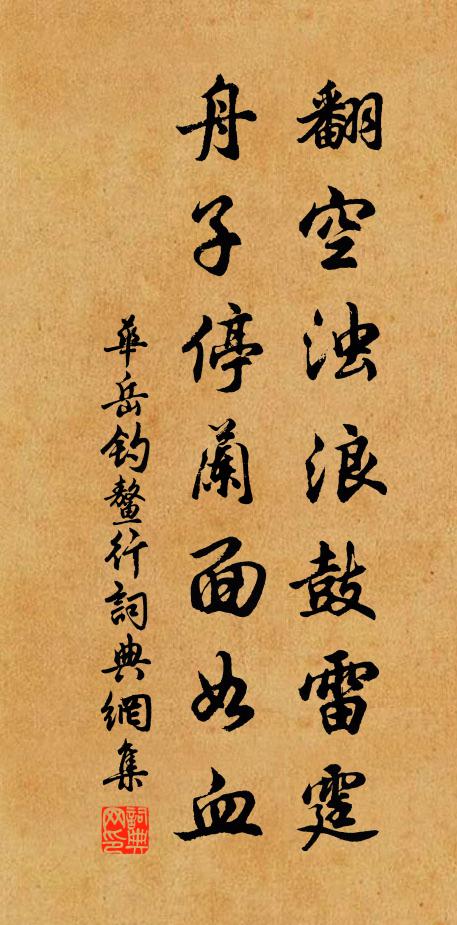 翻空浊浪鼓雷霆
舟子停蘭面如血
華岳釣鰲行詞典網集
詞典網印